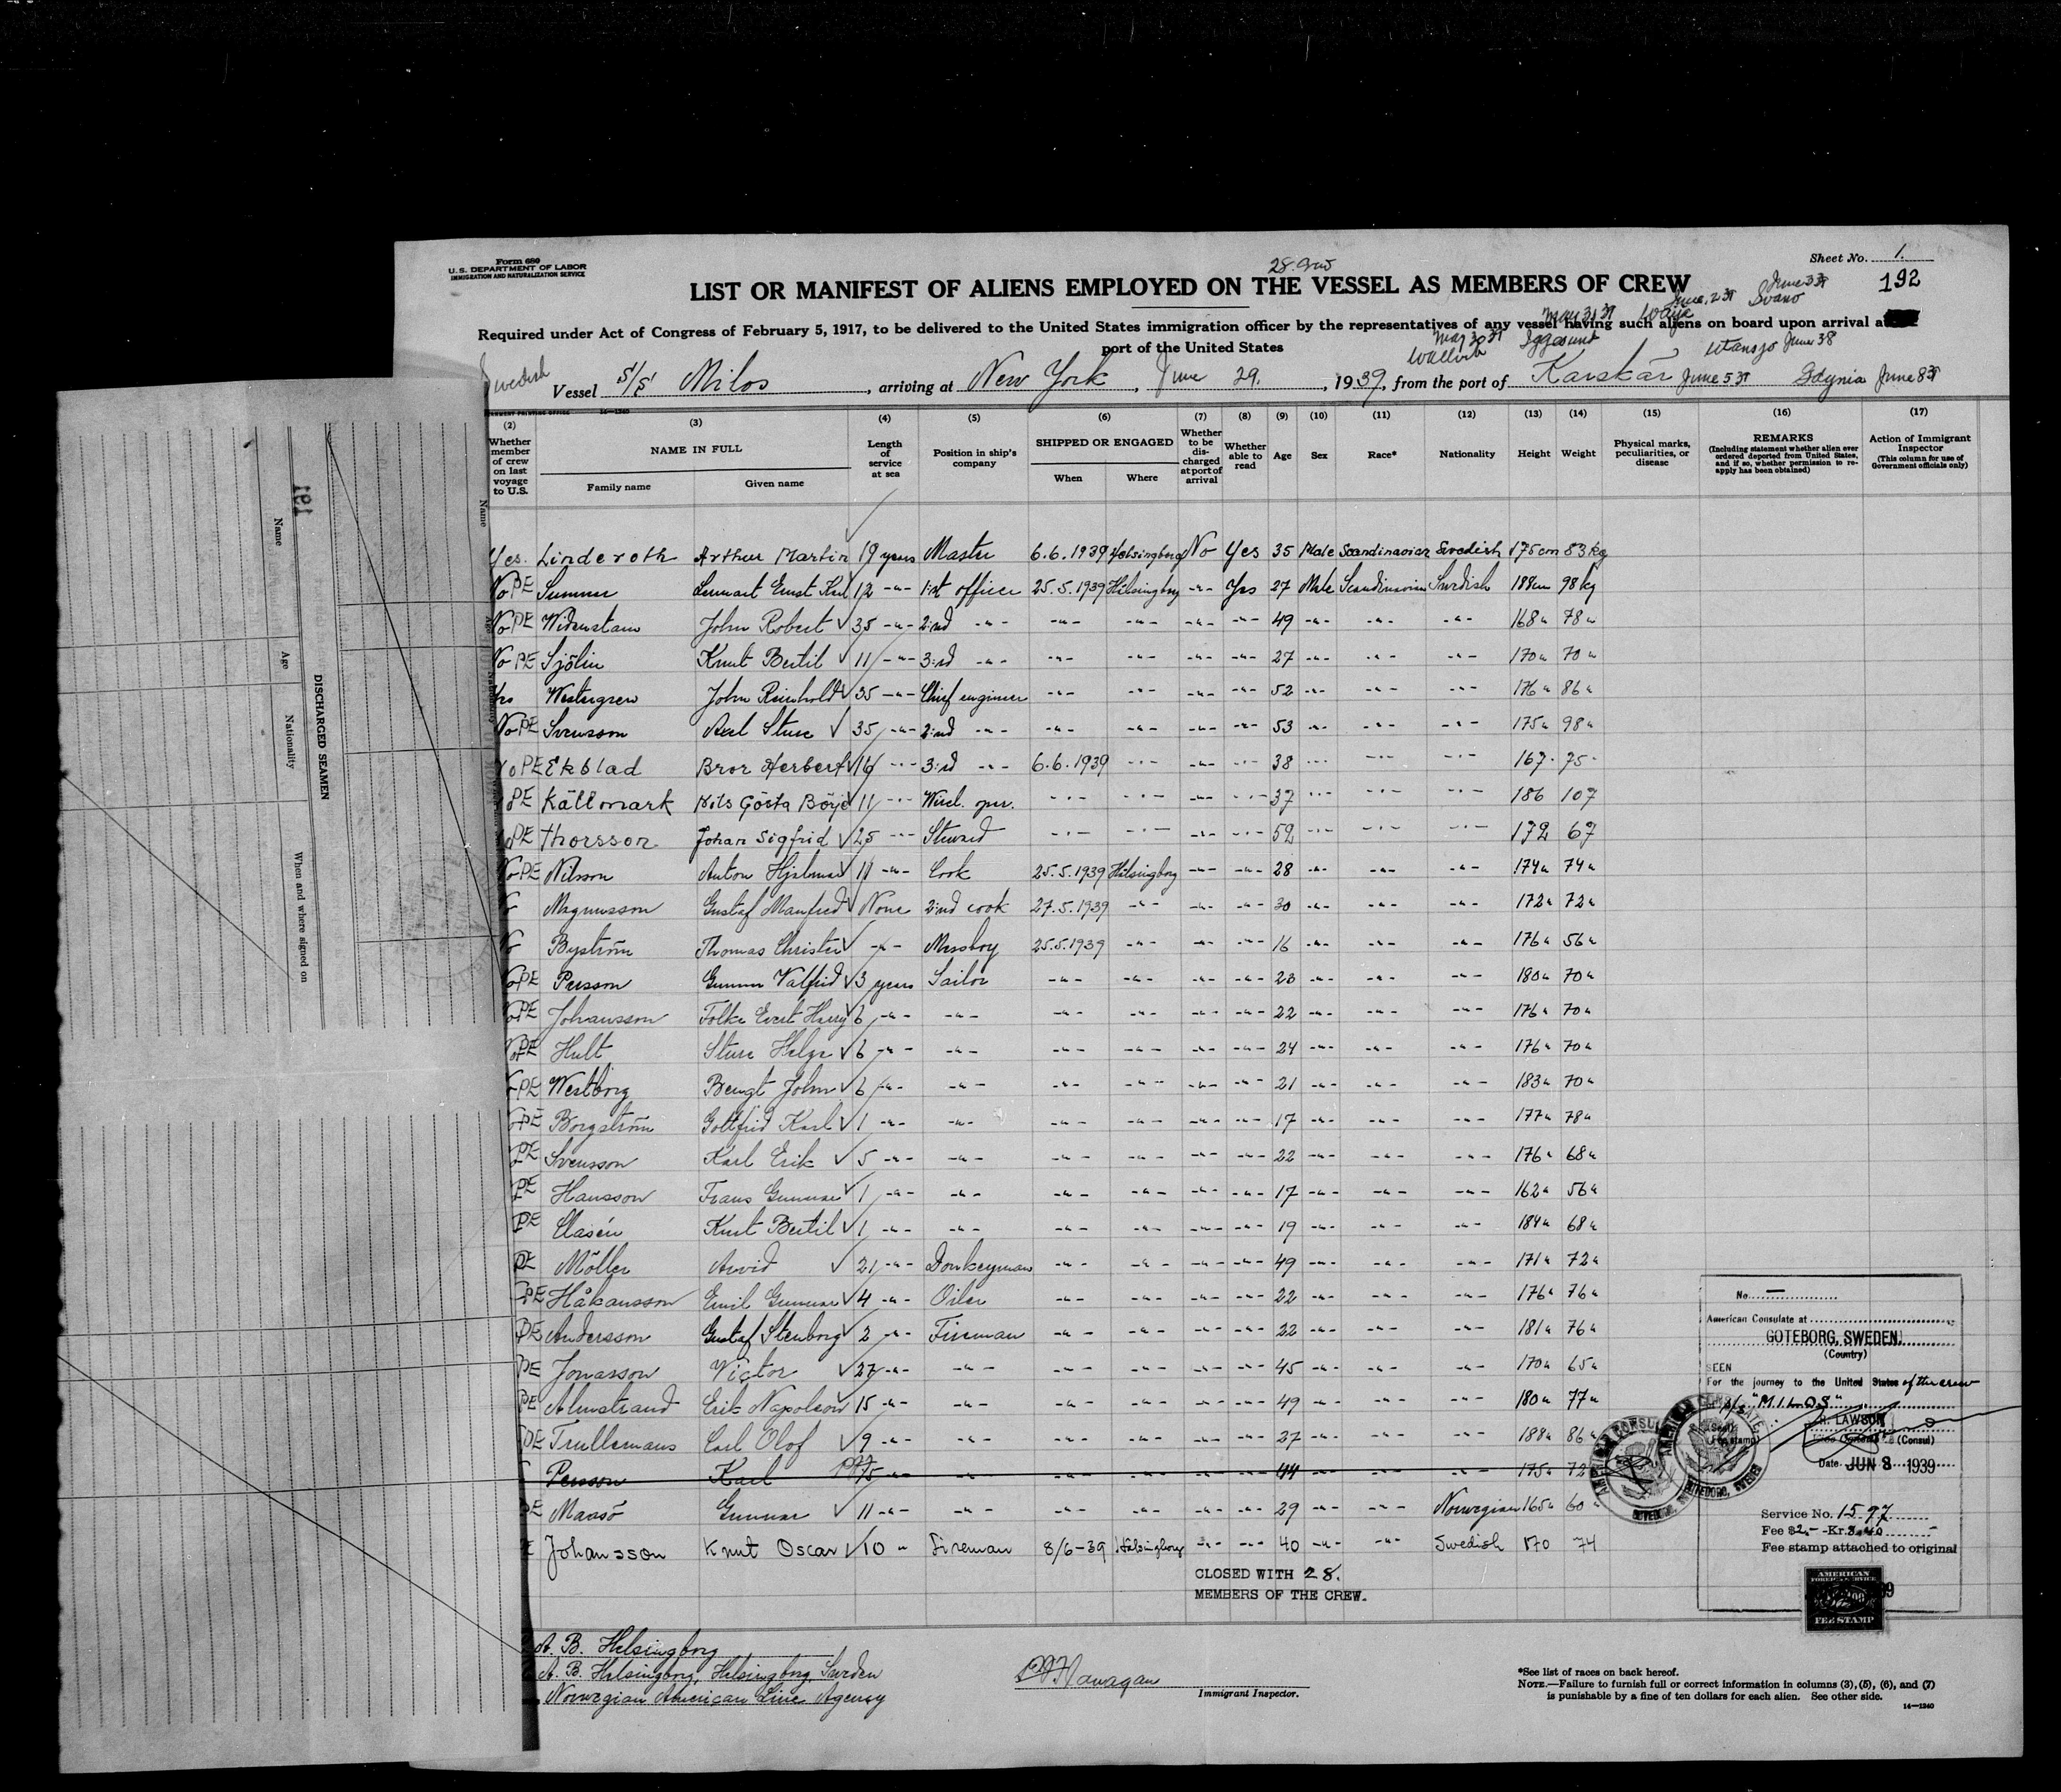 Form 680
U.S. DEPARTMENT OF LABOR
IMMIGRATION AND NATURALIZATION SERVICE
Sheet No. 1.
192
LIST OR MANIFEST OF ALIENS EMPLOYED ON THE VESSEL AS MEMBERS OF CREW
Required under Act of Congress of February 5, 1917, to be delivered to the United States immigration officer by the representatives of any vessel having such aliens on board upon arrival at
port of the United States
Utansjo June 38
Swedish Vessel S/S Milos, arriving at New York, June 29., 1939, from the port of Karskär June 5 39 Gdynia June 8 39
(2) (3) (4) (5) (6) (7) (8) (9) (10) (11) (12) (13) (14) (15) (16) (17)
Whether member of crew on last voyage to U.S.
NAME IN FULL
Family name Given name
Length of service at sea
Position in ship's company
SHIPPED OR ENGAGED
When Where
Whether to be discharged at port of arrival
Whether able to read
Age Sex Race* Nationality Height Weight
Physical marks, peculiarities, or disease
REMARKS
(Including statement whether alien ever ordered deported from United States, and if so, whether permission to reapply has been obtained)
Action of Immigrant Inspector
(This column for use of Government officials only)
Yes. Linderoth Arthur Martin 19 years Master 6.6.1939 Helsingborg No Yes 35 Male Scandinavian Swedish 175cm 83kg
No PE Summer Lennart Ernst Karl 12 -"- 1:st officer 25.5.1939 Helsingborg -"- Yes 27 Male Scandinavian Swedish 188cm 98kg
No PE Widenstam John Robert 35 -"- 2:nd -"- -"- -"- -"- -"- 49 -"- -"- -"- 168" 78"
No PE Sjölin Knut Bertil 11 -"- 3:rd -"- -"- -"- -"- -"- 27 -"- -"- -"- 170" 70"
Yes Westergren John Reinhold 35 -"- Chief engineer -"- -"- -"- -"- 52 -"- -"- -"- 176" 86"
No PE Svensson Axel Sture 35 -"- 2:nd -"- -"- -"- -"- -"- 53 -"- -"- -"- 175" 98"
No PE Ekblad Bror Herbert 16 -"- 3:rd -"- 6.6.1939 -"- -"- -"- 38 -"- -"- -"- 167" 75"
PE Källmark Nils Gösta Börje 11 -"- Wirel. oper. -"- -"- -"- -"- 37 -"- -"- -"- 186 107
PE Thorsson Johan Sigfrid 25 -"- Steward -"- -"- -"- -"- 52 -"- -"- -"- 172 67
No PE Nilsson Anton Hjalmar 11 -"- Cook 25.5.1939 Helsingborg -"- -"- 28 -"- -"- -"- 174" 74"
No Magnusson Gustaf Manfred None 2:nd cook 27.5.1939 -"- -"- -"- 30 -"- -"- -"- 172" 72"
No Byström Thomas Christer -"- Messboy 25.5.1939 -"- -"- -"- 16 -"- -"- -"- 176" 56"
No PE Persson Gunnar Valfrid 3 years Sailor -"- -"- -"- -"- 23 -"- -"- -"- 180" 70"
No PE Johansson Folke Evert Harry 6 -"- -"- -"- -"- -"- -"- 22 -"- -"- -"- 176" 70"
No PE Hult Sture Helge 6 -"- -"- -"- -"- -"- -"- 24 -"- -"- -"- 176" 70"
PE Westborg Bengt John 6 -"- -"- -"- -"- -"- -"- 21 -"- -"- -"- 183" 70"
PE Borgström Gottfrid Karl 1 -"- -"- -"- -"- -"- -"- 17 -"- -"- -"- 177" 78"
PE Svensson Karl Erik 5 -"- -"- -"- -"- -"- -"- 22 -"- -"- -"- 176" 68"
PE Hansson Frans Gunnar 1 -"- -"- -"- -"- -"- -"- 17 -"- -"- -"- 162" 56"
PE Clasén Knut Bertil 1 -"- -"- -"- -"- -"- -"- 19 -"- -"- -"- 184" 68"
PE Möller Arvid 21 -"- Donkeyman -"- -"- -"- -"- 49 -"- -"- -"- 171" 72"
PE Håkansson Emil Gunnar 4 -"- Oiler -"- -"- -"- -"- 22 -"- -"- -"- 176" 76"
PE Andersson Gustaf Stenborg 2 -"- Fireman -"- -"- -"- -"- 22 -"- -"- -"- 181" 76"
PE Jonasson Victor 27 -"- -"- -"- -"- -"- -"- 45 -"- -"- -"- 170" 65"
PE Almstrand Erik Napoleon 15 -"- -"- -"- -"- -"- -"- 49 -"- -"- -"- 180" 77"
PE Trullemans Carl Olof 9 -"- -"- -"- -"- -"- -"- 37 -"- -"- -"- 188" 86"
Persson Karl -"- -"- -"- -"- -"- -"- 44 -"- -"- -"- 175" 72"
PE Maasö Gunnar 11 -"- -"- -"- -"- -"- -"- 29 -"- -"- Norwegian 165" 60"
Johansson Knut Oscar 10 " Fireman 8/6-39 Helsingborg -"- -"- 40 -"- -"- Swedish 170 74
CLOSED WITH 28.
MEMBERS OF THE CREW.
No. —
American Consulate at
GOTEBORG, SWEDEN.
(Country)
SEEN
For the journey to the United States of the crew
"MILOS"
LAWSON
(Consul)
Date JUN 8 1939
Service No. 1597
Fee $2.- Kr.
Fee stamp attached to original
AMERICAN
FOREIGN SERVICE
FEE STAMP
A. B. Helsingborg
A. B. Helsingborg, Helsingborg, Sweden
Norwegian American Line Agency
Flanagan
Immigrant Inspector.
*See list of races on back hereof.
NOTE.—Failure to furnish full or correct information in columns (3), (5), (6), and (7)
is punishable by a fine of ten dollars for each alien. See other side.
14—1240
191
DISCHARGED SEAMEN
Name Age Nationality When and where signed on